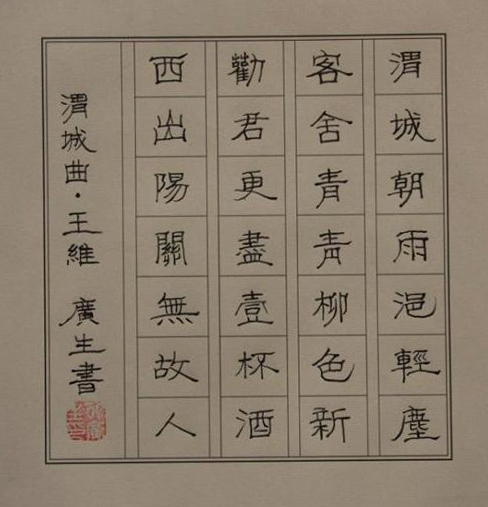 渭城朝雨浥輕塵
客舍青青柳色新
勸君更盡壹杯酒
西出陽關無故人
渭城曲·王維 廣生書